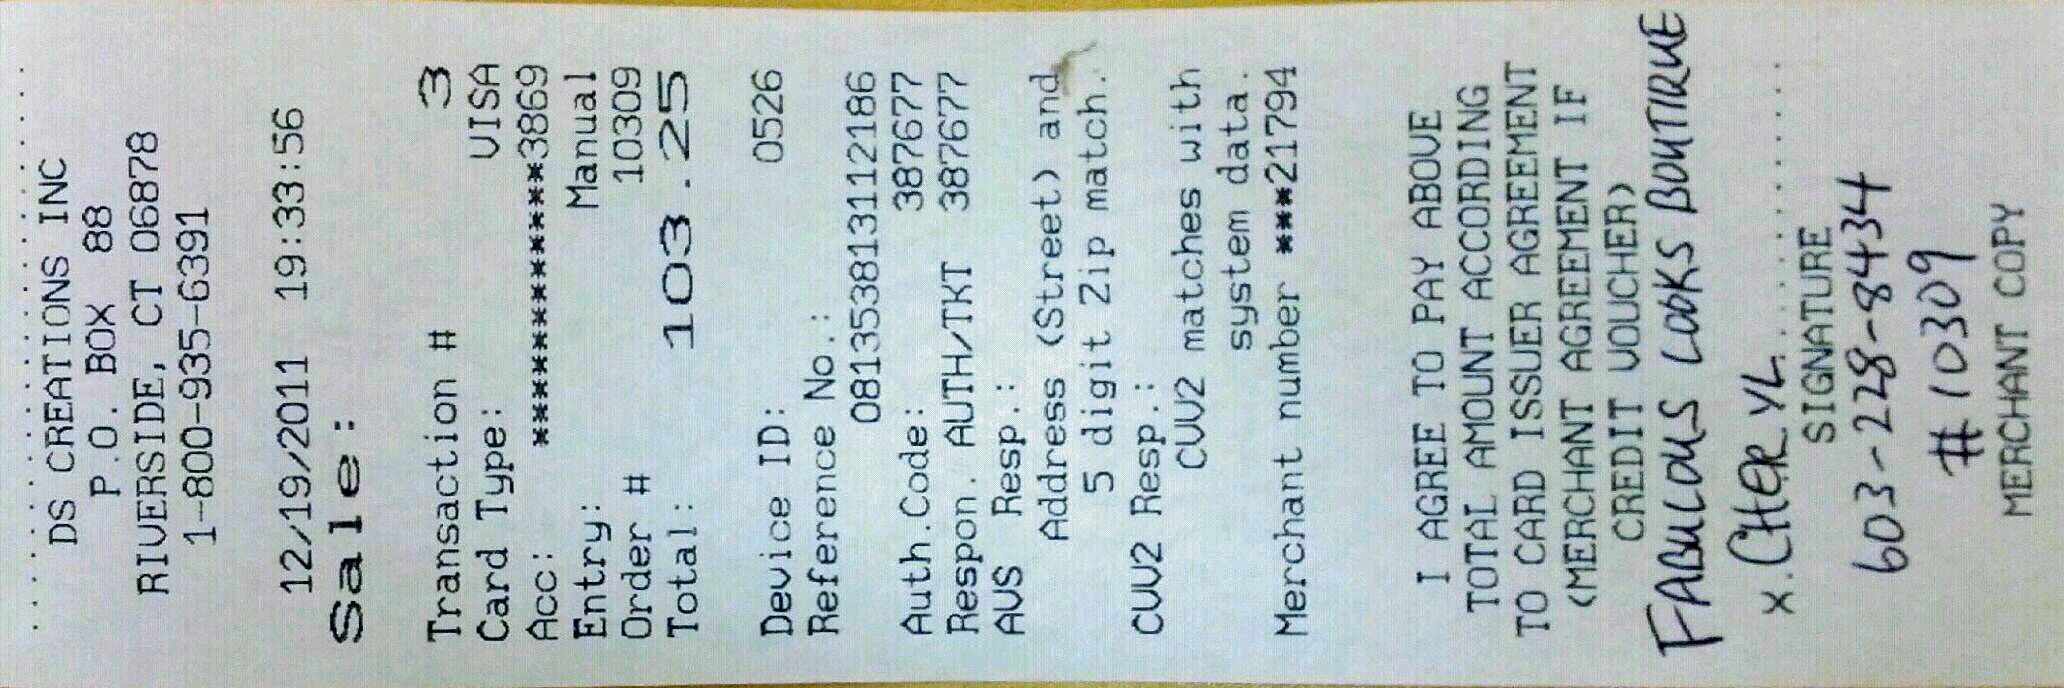 DS CREATIONS INC
P.O. BOX 88
RIVERSIDE, CT 06878
1-800-935-6391
12/19/2011 19:33:56
Sale:
Transaction # 3
Card Type: VISA
Acc: ************3869
Entry: Manual
Order # 10309
Total: 103.25
Device ID: 0526
Reference No.:
081353813112186
Auth.Code: 387677
Respon. AUTH/TKT 387677
AVS Resp.:
Address (Street) and
5 digit Zip match.
CVV2 Resp.:
CVV2 matches with
system data.
Merchant number ***21794
I AGREE TO PAY ABOVE
TOTAL AMOUNT ACCORDING
TO CARD ISSUER AGREEMENT
(MERCHANT AGREEMENT IF
CREDIT VOUCHER)
FABULOUS LOOKS BOUTIQUE
X. CHERYL
SIGNATURE
603-228-8434
# 10309
MERCHANT COPY